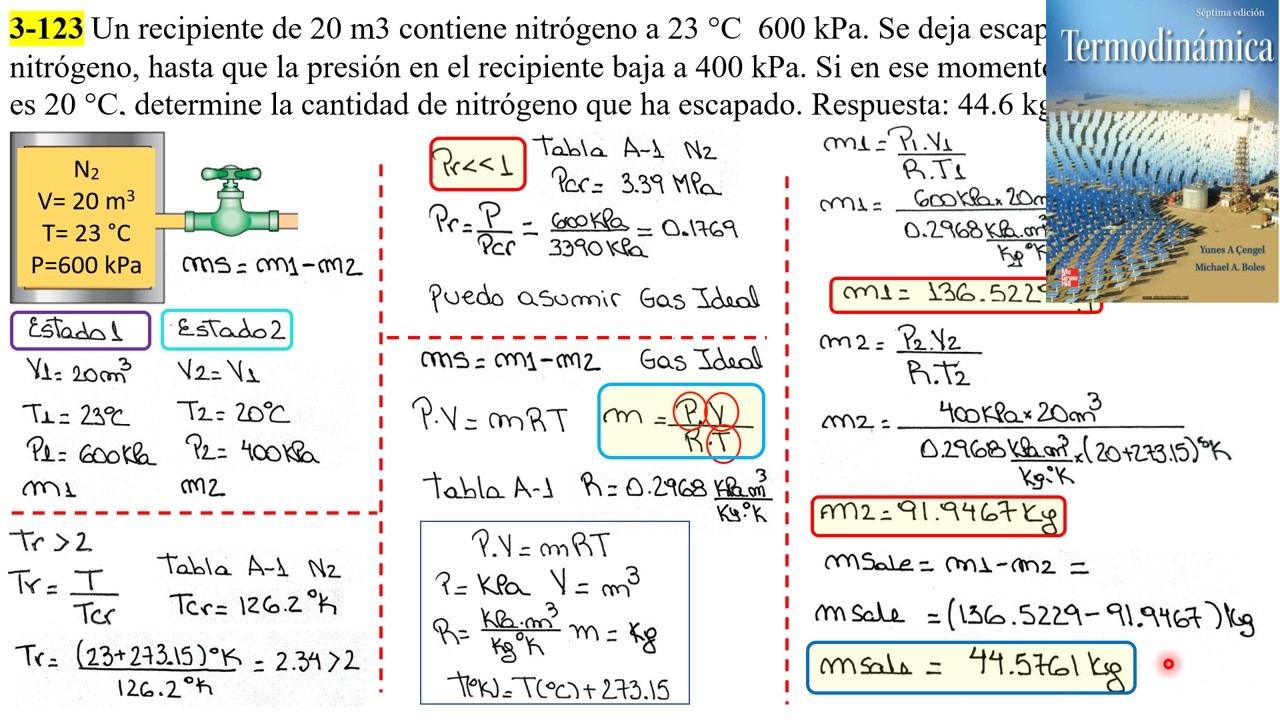 3-123 Un recipiente de 20 m3 contiene nitrógeno a 23 °C 600 kPa. Se deja escap
nitrógeno, hasta que la presión en el recipiente baja a 400 kPa. Si en ese moment
es 20 °C, determine la cantidad de nitrógeno que ha escapado. Respuesta: 44.6 kg
Séptima edición
Termodinámica
Yunes A Çengel
Michael A. Boles
Mc
Graw
Hill
N₂
V= 20 m³
T= 23 °C
P=600 kPa
ms = m1 - m2
Estado 1
Estado 2
V1 = 20m³
V2 = V1
T1 = 23°C
T2 = 20°C
P1 = 600 kPa
P2 = 400 kPa
m1
m2
Tr > 2
Tr = T / Tcr
Tabla A-1 N2
Tcr = 126.2°K
Tr = (23+273.15)°K / 126.2°K = 2.34 > 2
Pr << 1
Tabla A-1 N2
Pcr = 3.39 MPa
Pr = P / Pcr = 600 kPa / 3390 kPa = 0.1769
Puedo asumir Gas Ideal
ms = m1 - m2 Gas Ideal
P.V = mRT
m = P.V / R.T
Tabla A-1 R = 0.2968 kPa.m³ / Kg.°K
P.V = mRT
P = kPa V = m³
R = kPa.m³ / kg°K m = kg
T(°K) = T(°C) + 273.15
m1 = P1.V1 / R.T1
m1 = 600 kPa x 20m / 0.2968 kPa.m³ / Kg°K
m1 = 136.522
m2 = P2.V2 / R.T2
m2 = 400 kPa x 20m³ / 0.2968 kPa.m³ / Kg.°K x (20+273.15)°K
m2 = 91.9467 Kg
m sale = m1 - m2 =
m sale = (136.5229 - 91.9467) Kg
m sale = 44.5761 kg